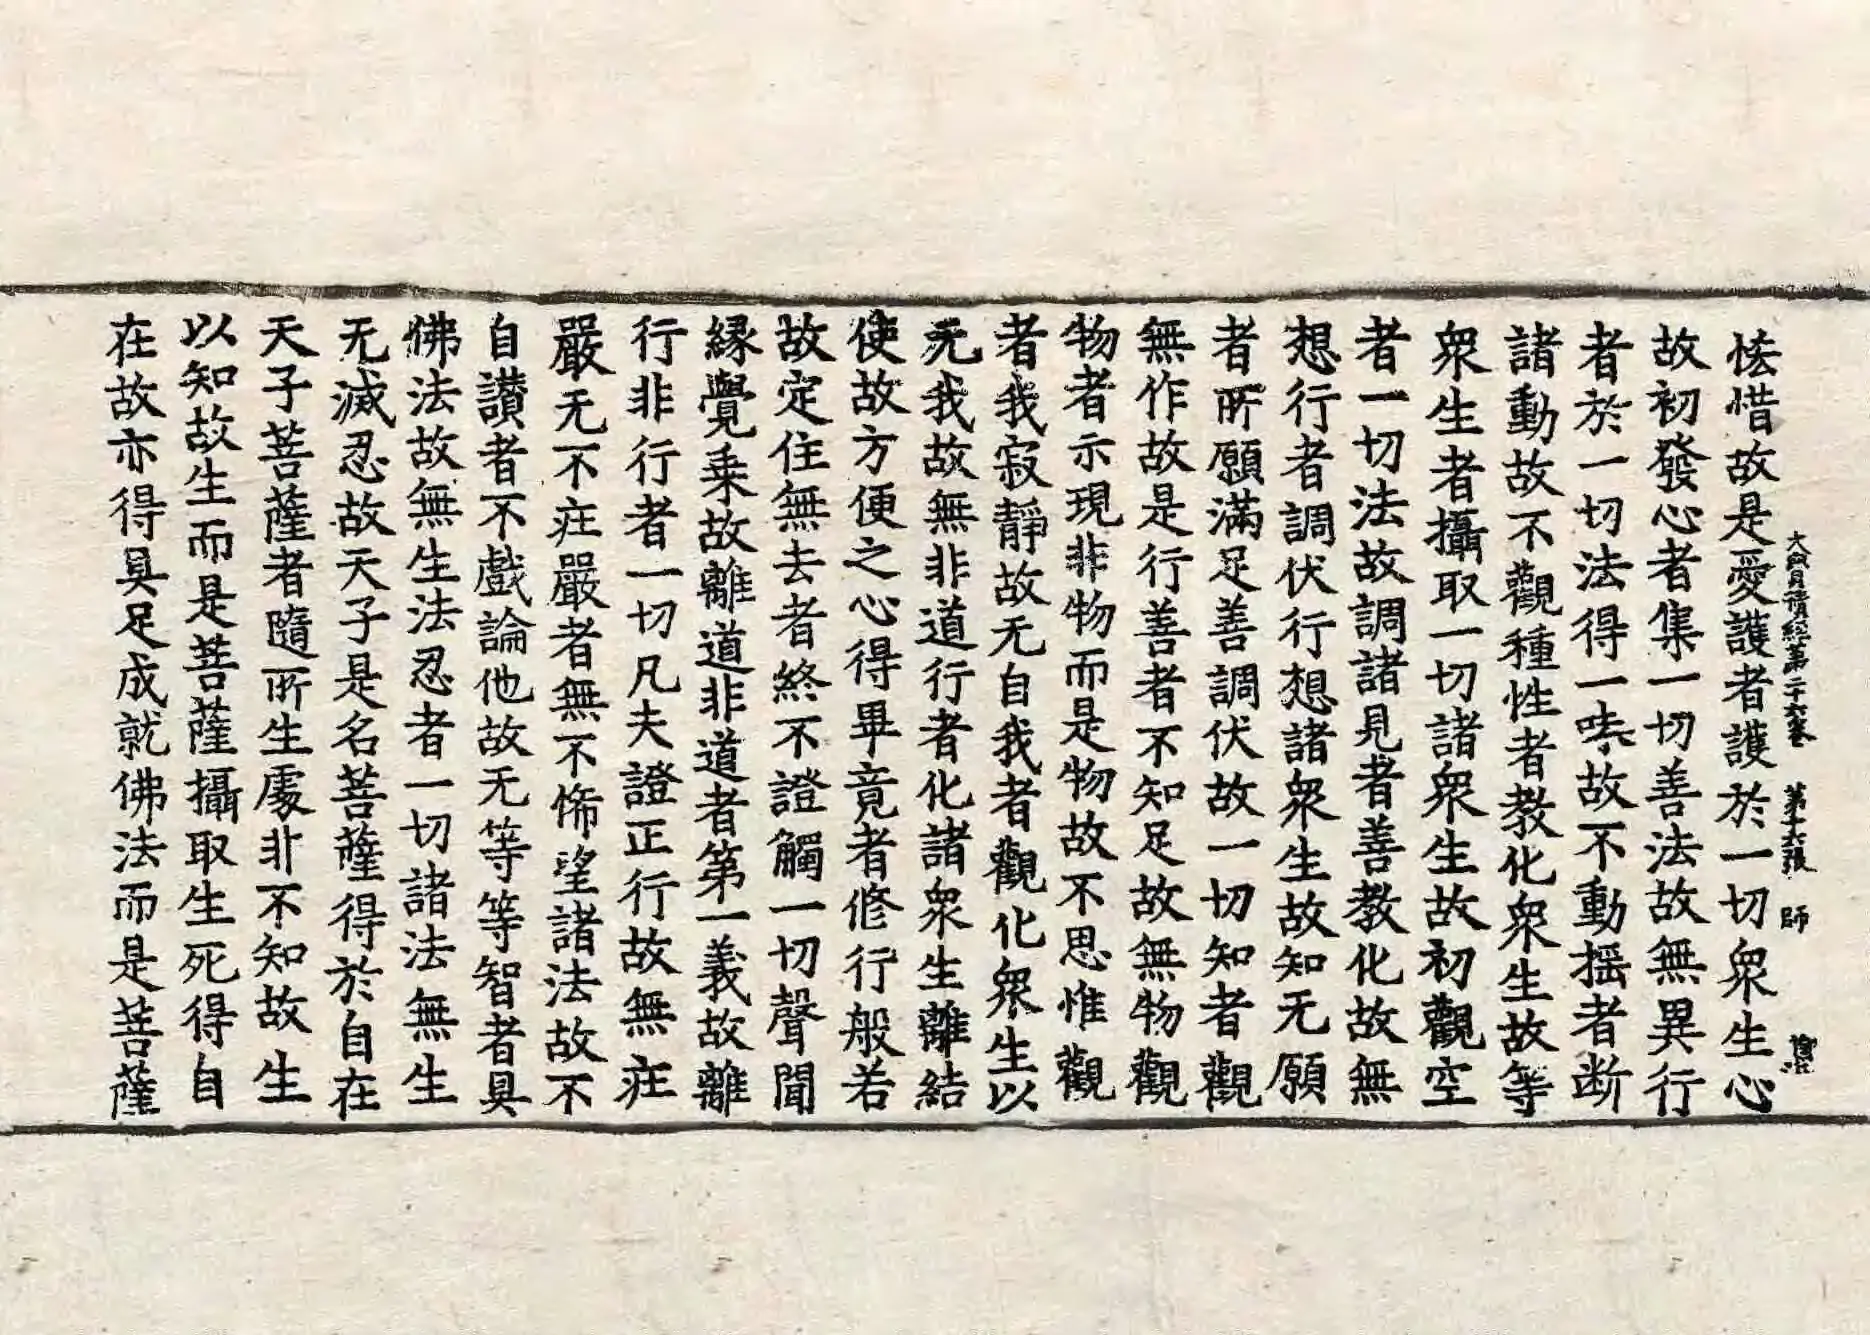 大寶積經第二十六卷 第十六張 師
悋惜故是愛護者護於一切衆生心
故初發心者集一切善法故無異行
者於一切法得一味故不動揺者断
諸動故不觀種性者教化衆生故等
衆生者攝取一切諸衆生故初觀空
者一切法故調諸見者善教化故無
想行者調伏行想諸衆生故知无願
者所願滿足善調伏故一切知者觀
無作故是行善者不知足故無物觀
物者示現非物而是物故不思惟觀
者我寂靜故无自我者觀化衆生以
无我故無非道行者化諸衆生離結
使故方便之心得畢竟者修行般若
故定住無去者終不證觸一切聲聞
緣覺乗故離道非道者第一義故離
行非行者一切凡夫證正行故無疰
嚴无不疰嚴者無不悕望諸法故不
自讃者不戲論他故无等等智者具
佛法故無生法忍者一切諸法無生
无滅忍故天子是名菩薩得於自在
天子菩薩者隨所生處非不知故生
以知故生而是菩薩攝取生死得自
在故亦得具足成就佛法而是菩薩